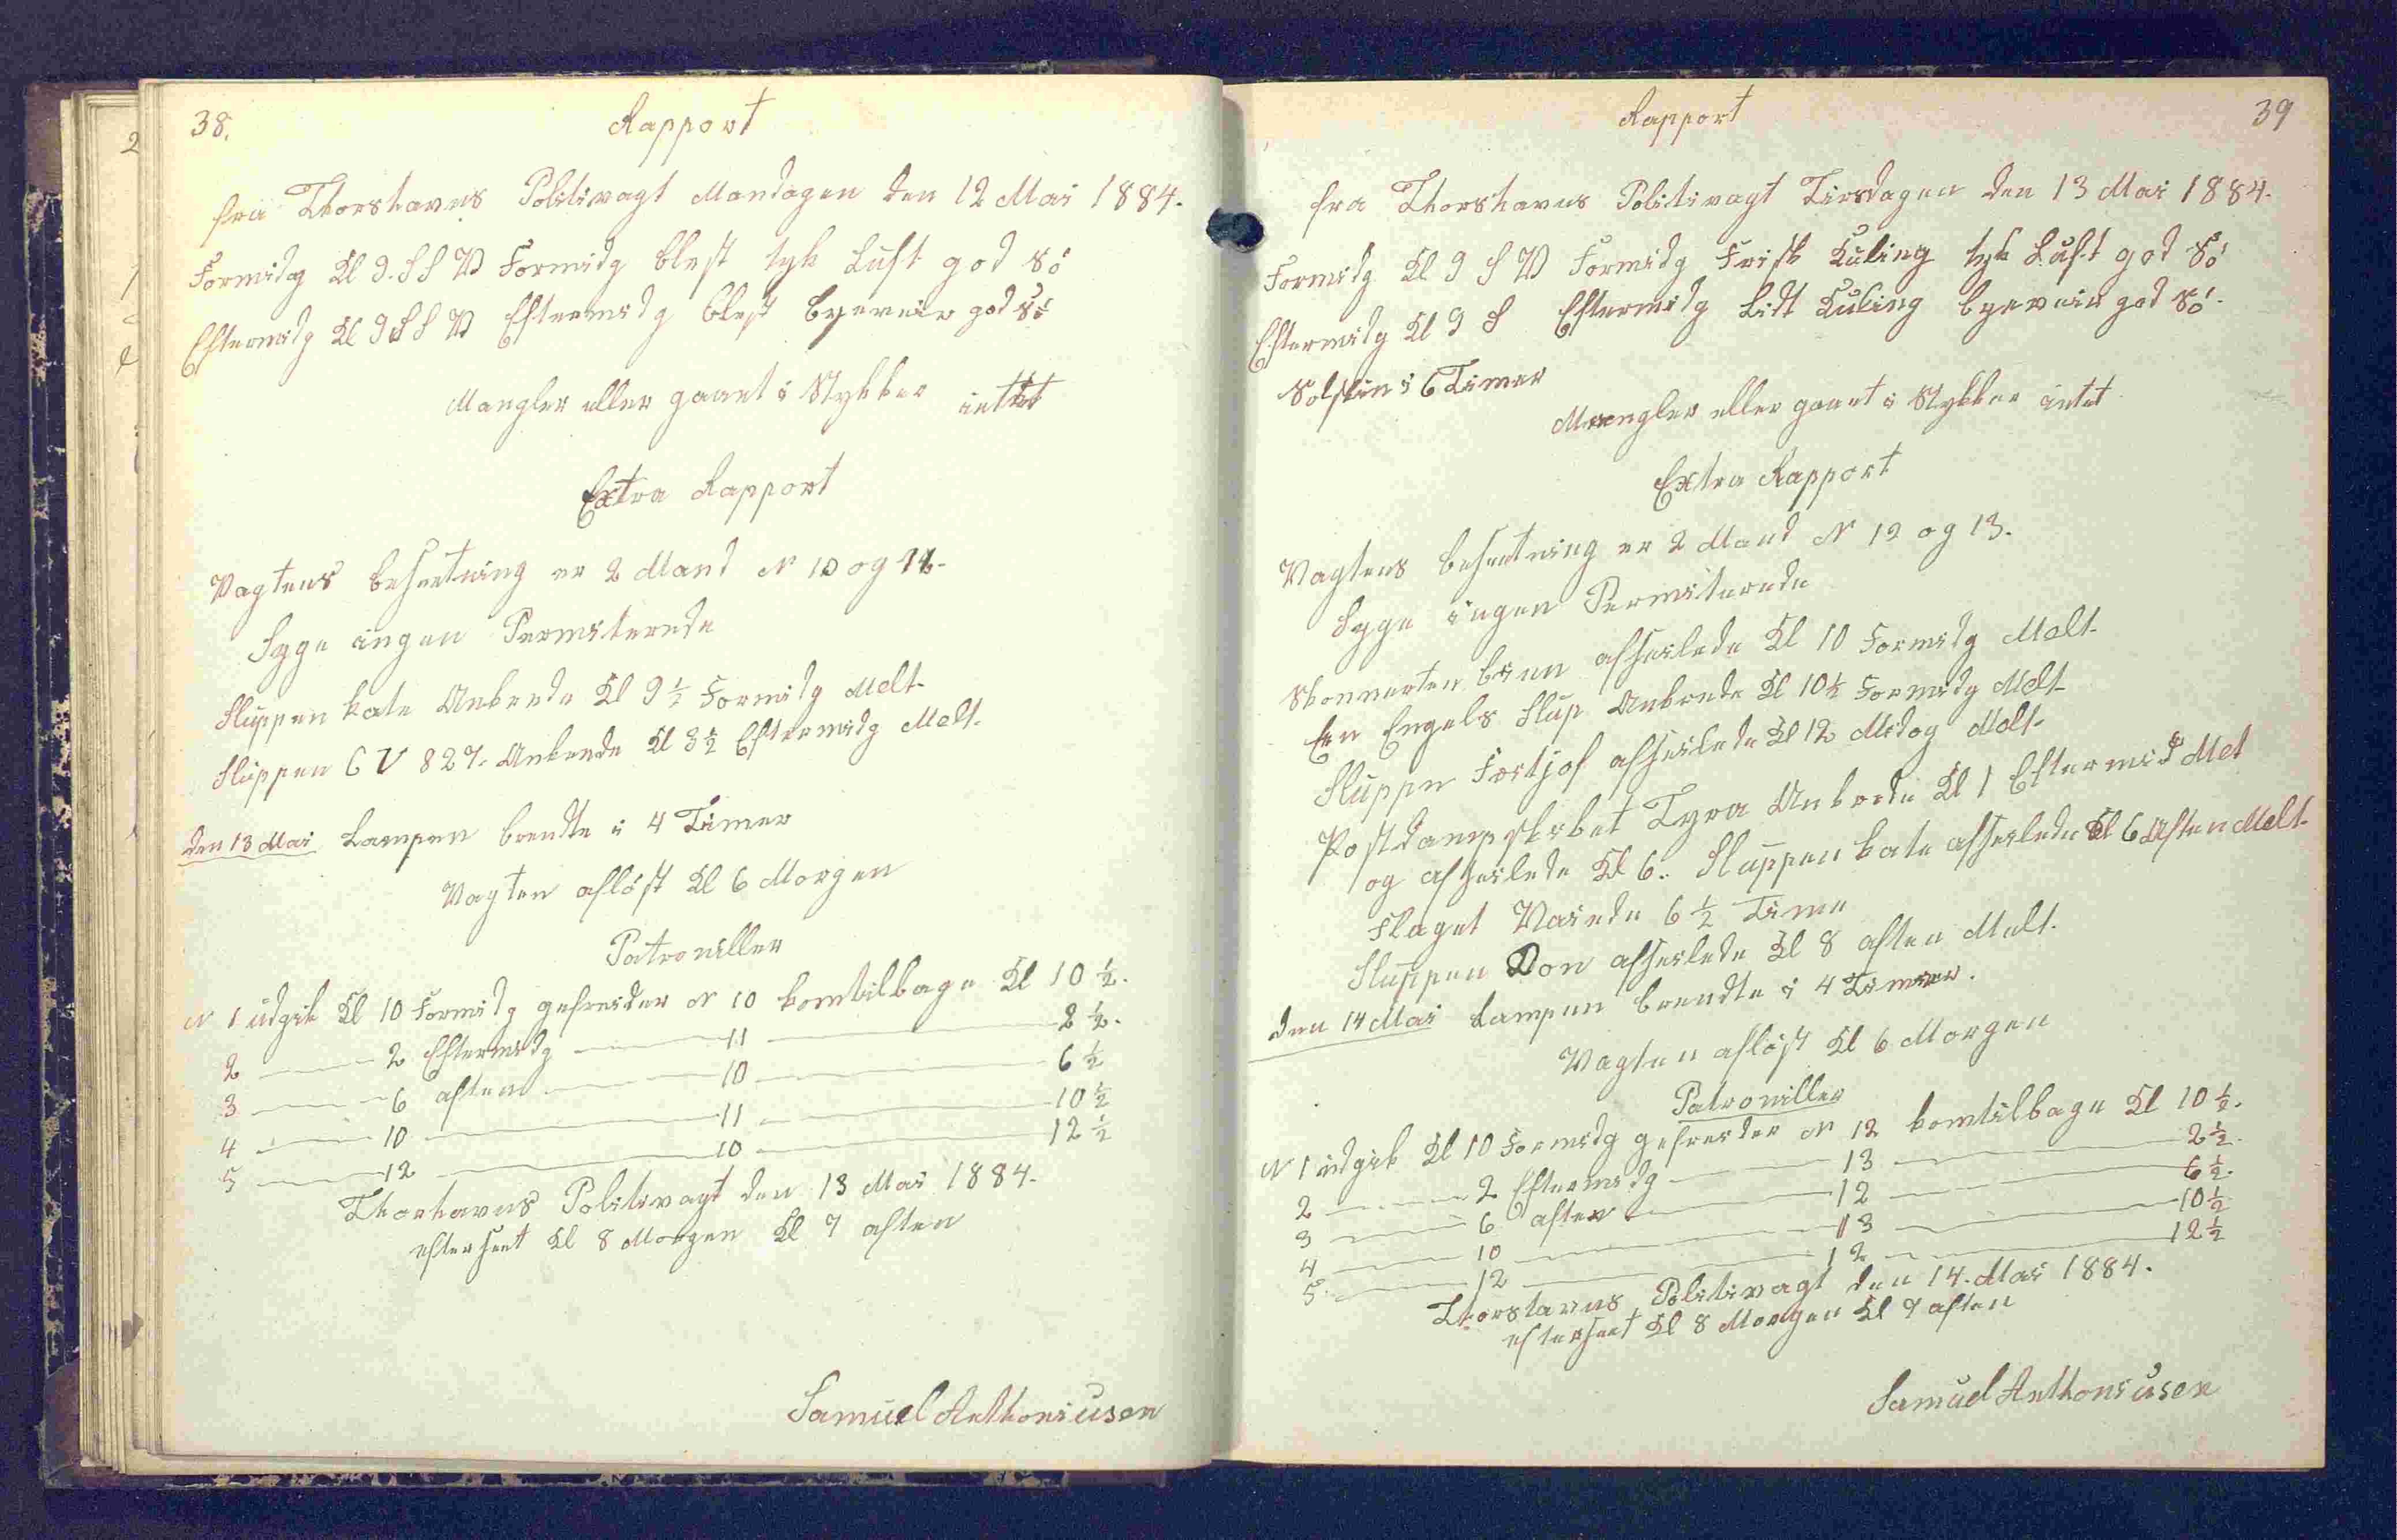 38.
Rapport
fra Thorshavns Politivagt Mandagen den 12 Mai 1884.
Formidg Kl 9. SS V Formidg blest tyk Luft god Sö
Eftermidg Kl 9 SS V Eftermidg blest byeveir god Sö
Mangler eller gaaet i Stykker intet
Extra Rapport
Vagtens besætning er 2 Mand N 10 og 11.
Syge ingen Permiterede
Sluppen Kate Ankrede Kl 9½ Formidg Melt.
Sluppen C V 827. Ankrede Kl 3½ Eftermidg Melt.
den 13 Mai Lampen brendte i 4 Timer
Vagten aflöst Kl 6 Morgen
Patrouiller
N 1 udgik Kl 10 Formidg gefreider N 10 komtilbage Kl 10½.
2 — 2 Eftermidg — 11 — 2½.
3 — 6 aften — 10 — 6½
4 — 10 — 11 — 10½
5 — 12 — 10 — 12½
Thorhavns Politivagt den 13 Mai 1884.
efterseet Kl 8 Morgen Kl 7 aften
Samuel Anthoniusen
39
Rapport
fra Thorshavns Politivagt Tirsdagen den 13 Mai 1884.
Formidg Kl 9 S V Formidg Frisk Kuling tyk Luft god Sö
Eftermidg Kl 9 S Eftermidg Lidt Kuling byeveir god Sö.
Solskin i 6 Timer
Mangler eller gaaet i Stykker intet
Extra Rapport
Vagtens besætning er 2 Mand N 12 og 13.
Syge ingen Permiterede
Skonnerten afseilede Kl 10 Formidg Melt.
En Engels Slup Ankrede Kl 10½ Formidg Melt.
Sluppen afseilede Kl 12 Midag Melt.
Postdampskibet Tyra Ankrede Kl 1 Eftermid Mel
og afseilede Kl 6. Sluppen Kate afseilede Kl 6 Aften Melt.
Flaget Vaiede 6½ Time
Sluppen Don afseilede Kl 8 aften Melt.
den 14 Mai Lampen brendte i 4 Timer.
Vagten aflöst Kl 6 Morgen
Patrouiller
N 1 udgik Kl 10 Formidg gefreider N 12 komtilbage Kl 10½.
2 — 2 Eftermidg — 13 — 2½.
3 — 6 aften — 12 — 6½.
4 — 10 — 13 — 10½
5. — 12 — 12 — 12½
Thorshavns Politivagt den 14. Mai 1884.
efterseet Kl 8 Morgen Kl 7 aften
Samuel Anthoniusen